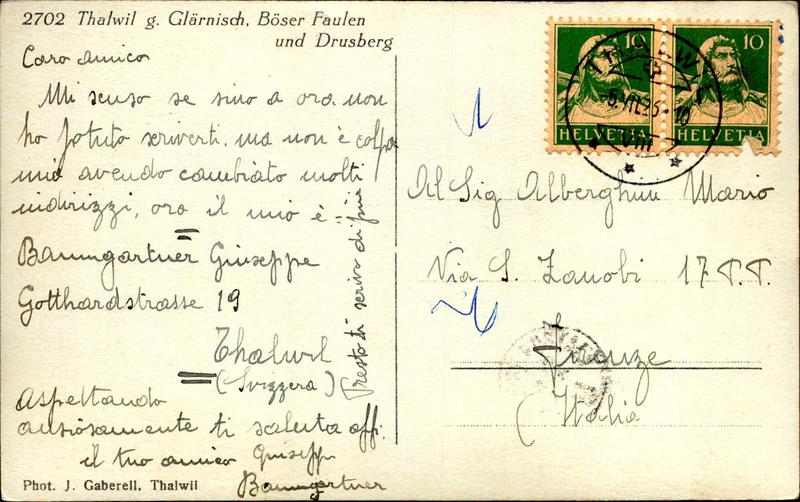 2702 Thalwil g. Glärnisch, Böser Faulen
und Drusberg
Caro amico
Mi scuso se sino a ora non
ho potuto scriverti, ma non è colpa
mia avendo cambiato molti
indirizzi, ora il mio è =
Baumgartner Giuseppe
Gotthardstrasse 19
Thalwil
(Svizzera)
Aspettando
ansiosamente ti saluta aff.
il tuo amico Giuseppe
Baumgartner
Presto ti scrivo di più
Phot. J. Gaberell, Thalwil
10 10
HELVETIA HELVETIA
Al Sig Alberghini Mario
Via S. Zanobi 17 P.T.
Firenze
(Italia